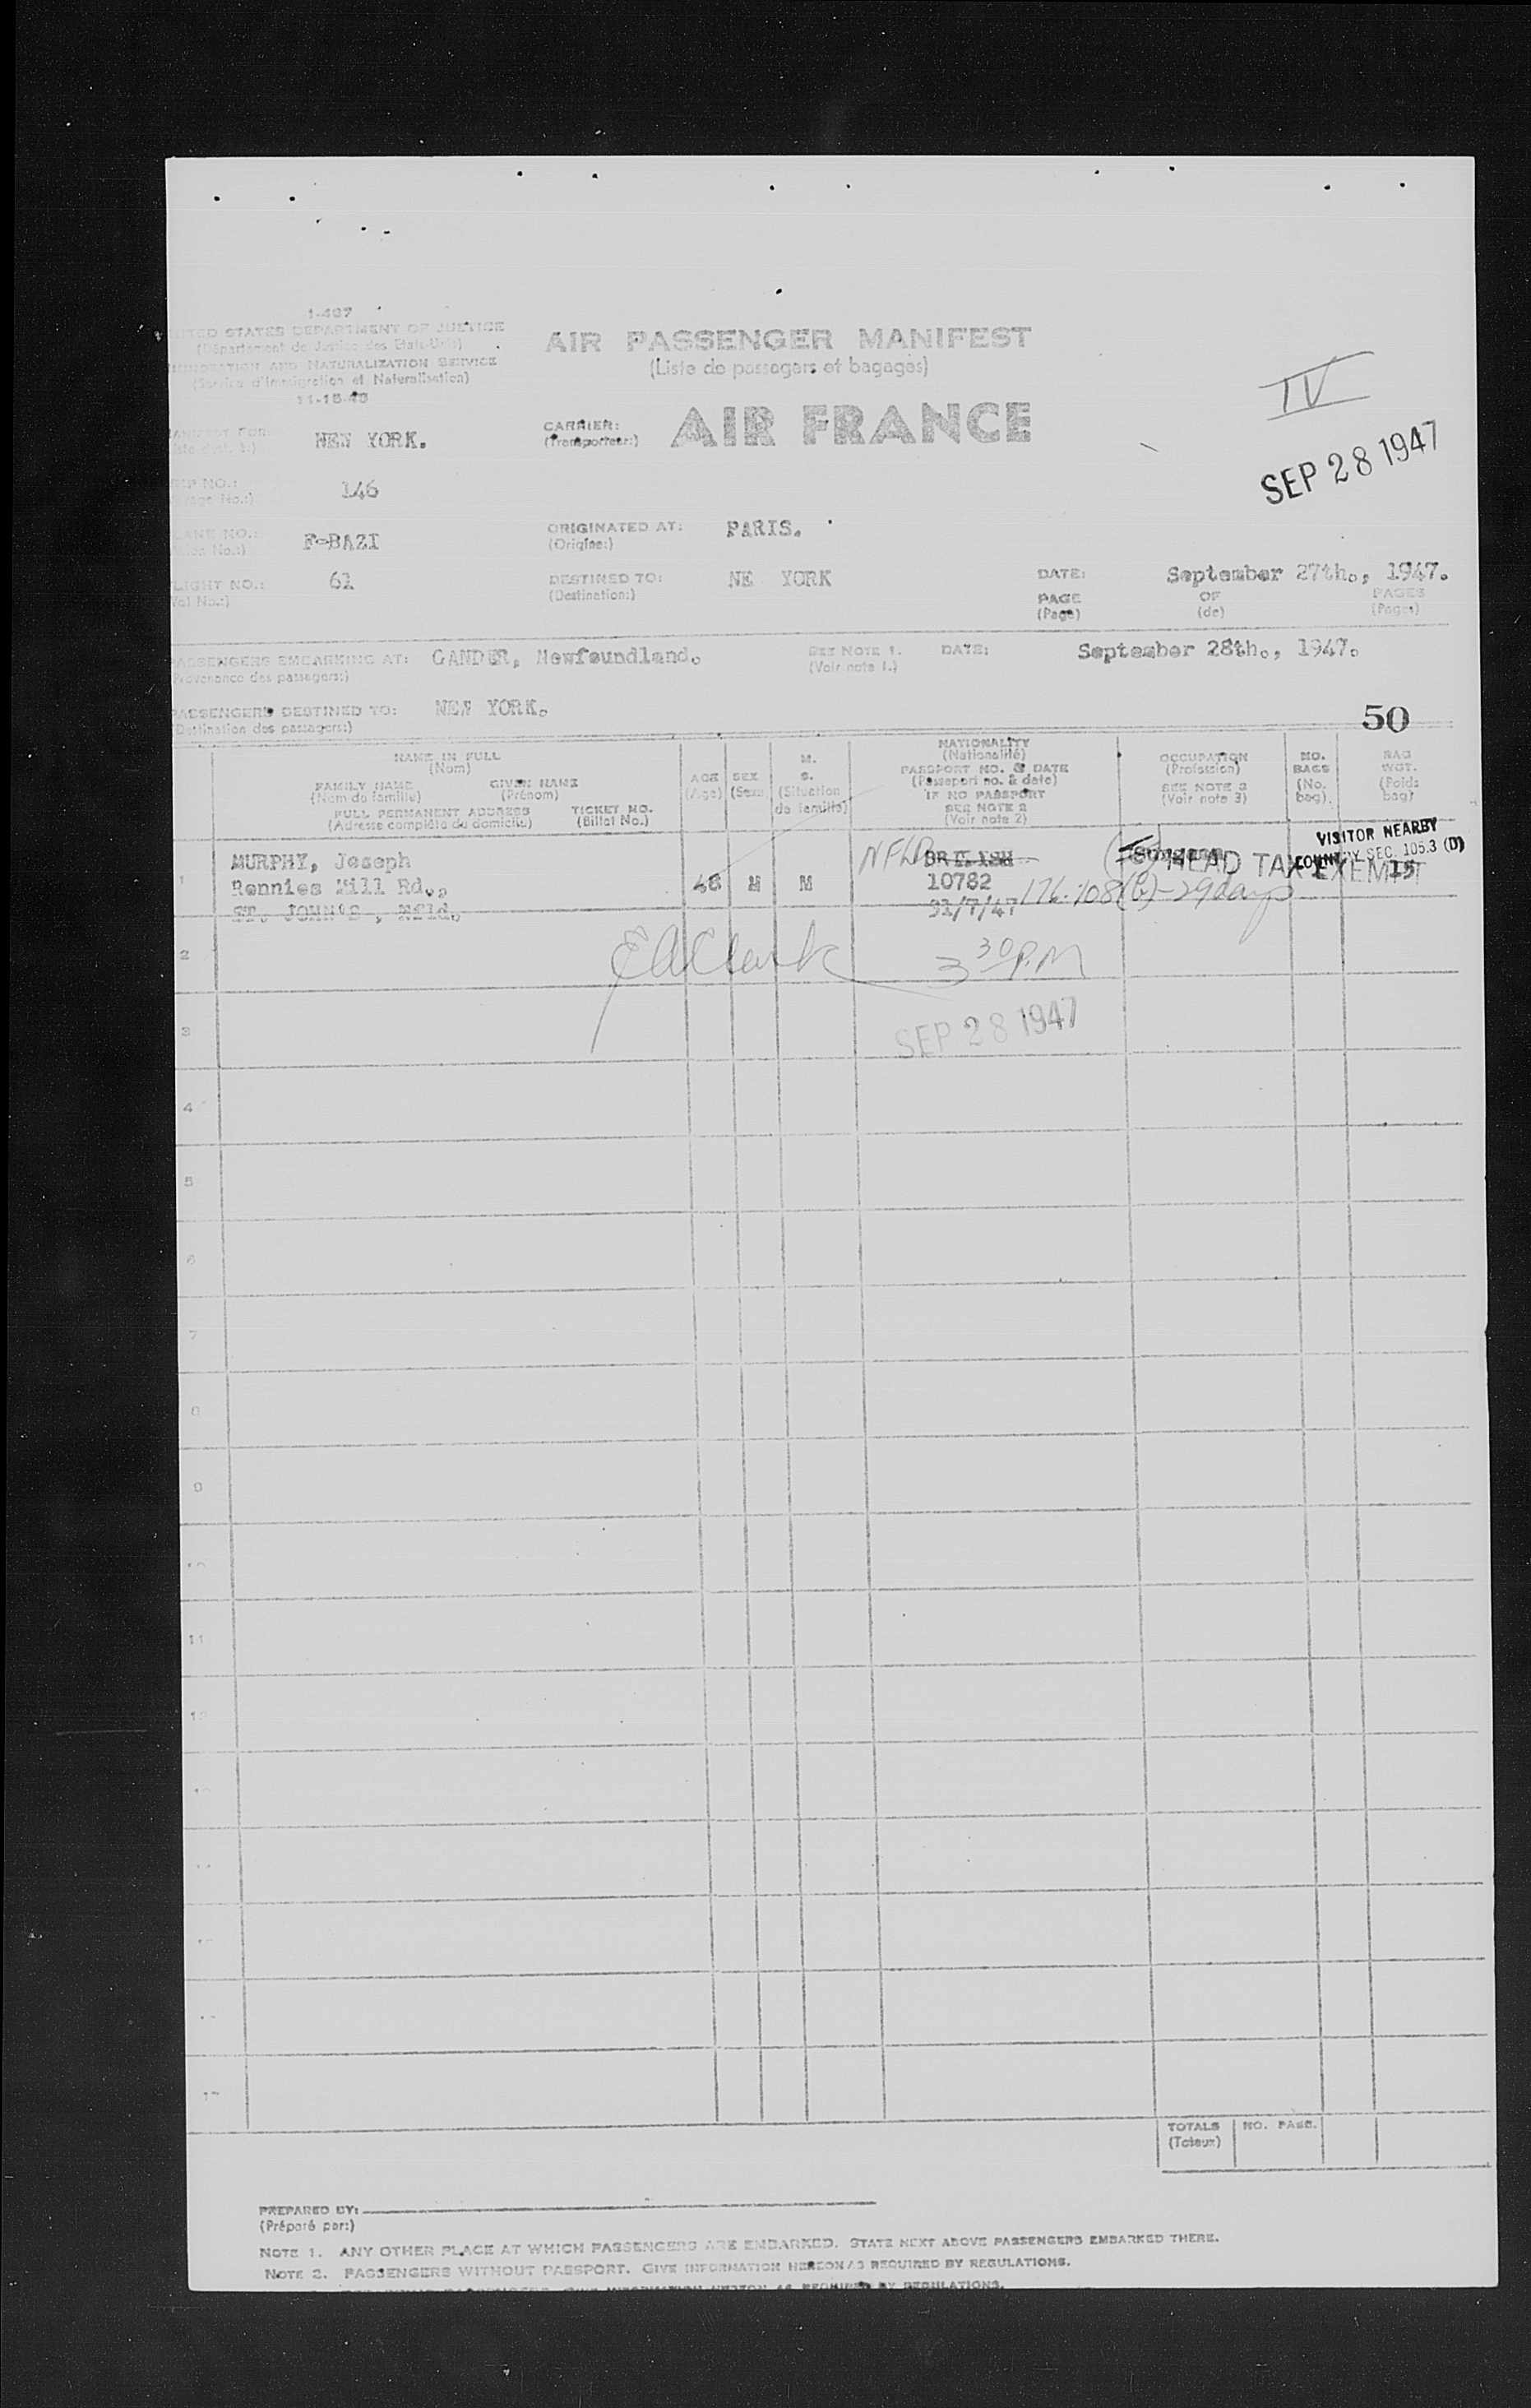 1-467
UNITED STATES DEPARTMENT OF JUSTICE
(Département de Justice des Etats-Unis)
IMMIGRATION AND NATURALIZATION SERVICE
(Service d'Immigration et Naturalisation)
11-15-45
AIR PASSENGER MANIFEST
(Liste de passagers et bagages)
IV
NEW YORK.
CARRIER:
(Transporteur:)
AIR FRANCE
SEP 28 1947
TRIP NO.: 146
PLANE NO.: F-BAZI
ORIGINATED AT: PARIS.
(Origine:)
FLIGHT NO.: 61
(Vol No.:)
DESTINED TO: NE YORK
(Destination:)
DATE: September 27th., 1947.
PAGE OF PAGES
(Page) (de) (Pages)
PASSENGERS EMBARKING AT: GANDER, Newfoundland. SEE NOTE 1. DATE: September 28th., 1947.
(Provenance des passagers:) (Voir note 1.)
PASSENGERS DESTINED TO: NEW YORK.
(Destination des passagers:)
50
NAME IN FULL
(Nom)
FAMILY NAME GIVEN NAME
(Nom de famille) (Prénom)
FULL PERMANENT ADDRESS TICKET NO.
(Adresse complète du domicile) (Billet No.)
AGE
(Age)
SEX
(Sexe)
M.
S.
(Situation
de famille)
NATIONALITY
(Nationalité)
PASSPORT NO. & DATE
(Passeport no. & date)
IF NO PASSPORT
SEE NOTE 2
(Voir note 2)
OCCUPATION
(Profession)
SEE NOTE 3
(Voir note 3)
NO.
BAGS
(No.
bag).
BAG
WGT.
(Poids
bag)
1
MURPHY, Joseph
Rennies Mill Rd.,
ST. JOHN'S, Nfld.
48 M M
NFLD BRITISH
10782
31/7/47
HEAD TAX EXEMPT
VISITOR NEARBY
COUNTRY SEC. 105.3 (D)
15
176.108(b)-29days
2
EAClark
3 30 P.M
3
SEP 28 1947
4
5
6
7
8
9
10
11
12
TOTALS NO. PASS.
(Totaux)
PREPARED BY:
(Préparé par:)
NOTE 1. ANY OTHER PLACE AT WHICH PASSENGERS ARE EMBARKED. STATE NEXT ABOVE PASSENGERS EMBARKED THERE.
NOTE 2. PASSENGERS WITHOUT PASSPORT. GIVE INFORMATION HEREON AS REQUIRED BY REGULATIONS.